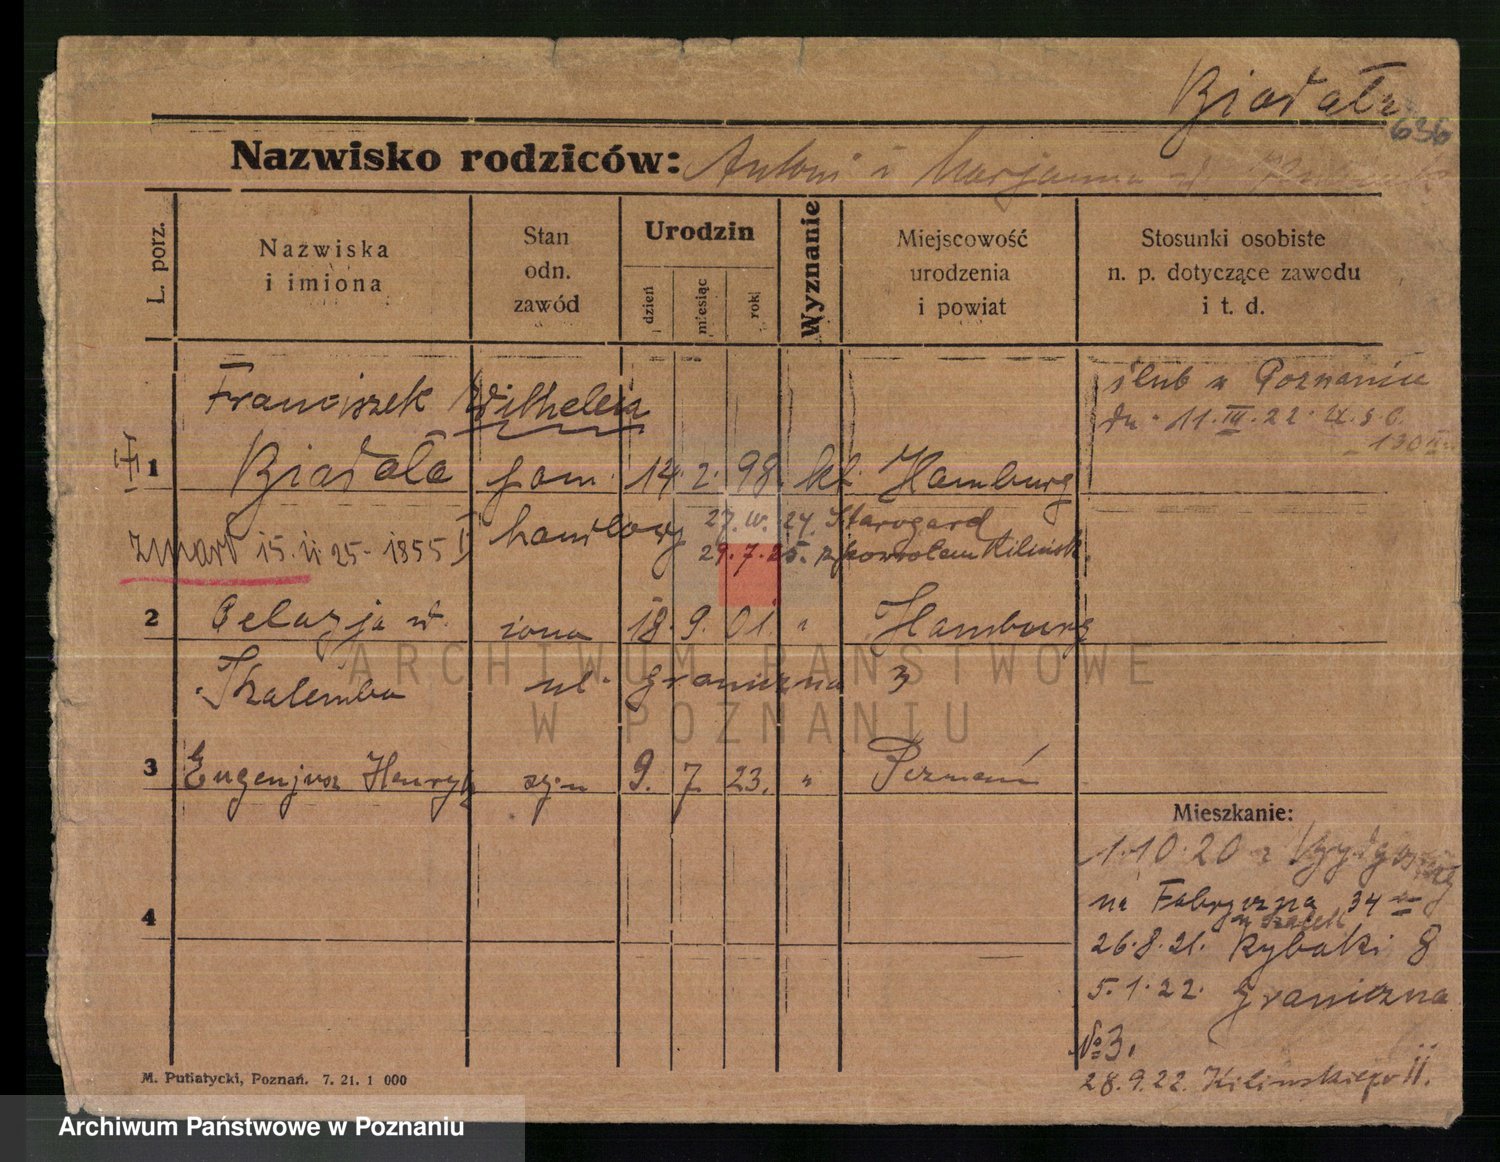 Biadała
636
Nazwisko rodziców: Antoni i Marjanna
L. porz.
Nazwiska i imiona
Stan odn. zawód
Urodzin
dzień
miesiąc
rok
Wyznanie
Miejscowość urodzenia i powiat
Stosunki osobiste n. p. dotyczące zawodu i t. d.
Franciszek Wilhelm
ślub w Poznaniu
dn. 11.III.22
1 Biadała pom. 14. 2. 98. kt. Hamburg
handlowy 27.IV.24 Starogard
zmarł 15. II 25 - 1855
29.7.25. z powrotem Kilińsk.
2 Pelazja ż. żona 18. 9. 01. " Hamburg
Skalemba ul. Graniczna 3
3 Eugenjusz Henryk syn 9. 7. 23. " Poznań
4
Mieszkanie:
1.10.20 z Bydgoszczy
na Fabryczna 34
26.8.21. Rybaki 8
5.1.22. Graniczna
№ 3.
28.9.22. Kilińskiego II.
M. Putiatycki, Poznań. 7. 21. 1 000
ARCHIWUM PAŃSTWOWE
W POZNANIU
Archiwum Państwowe w Poznaniu